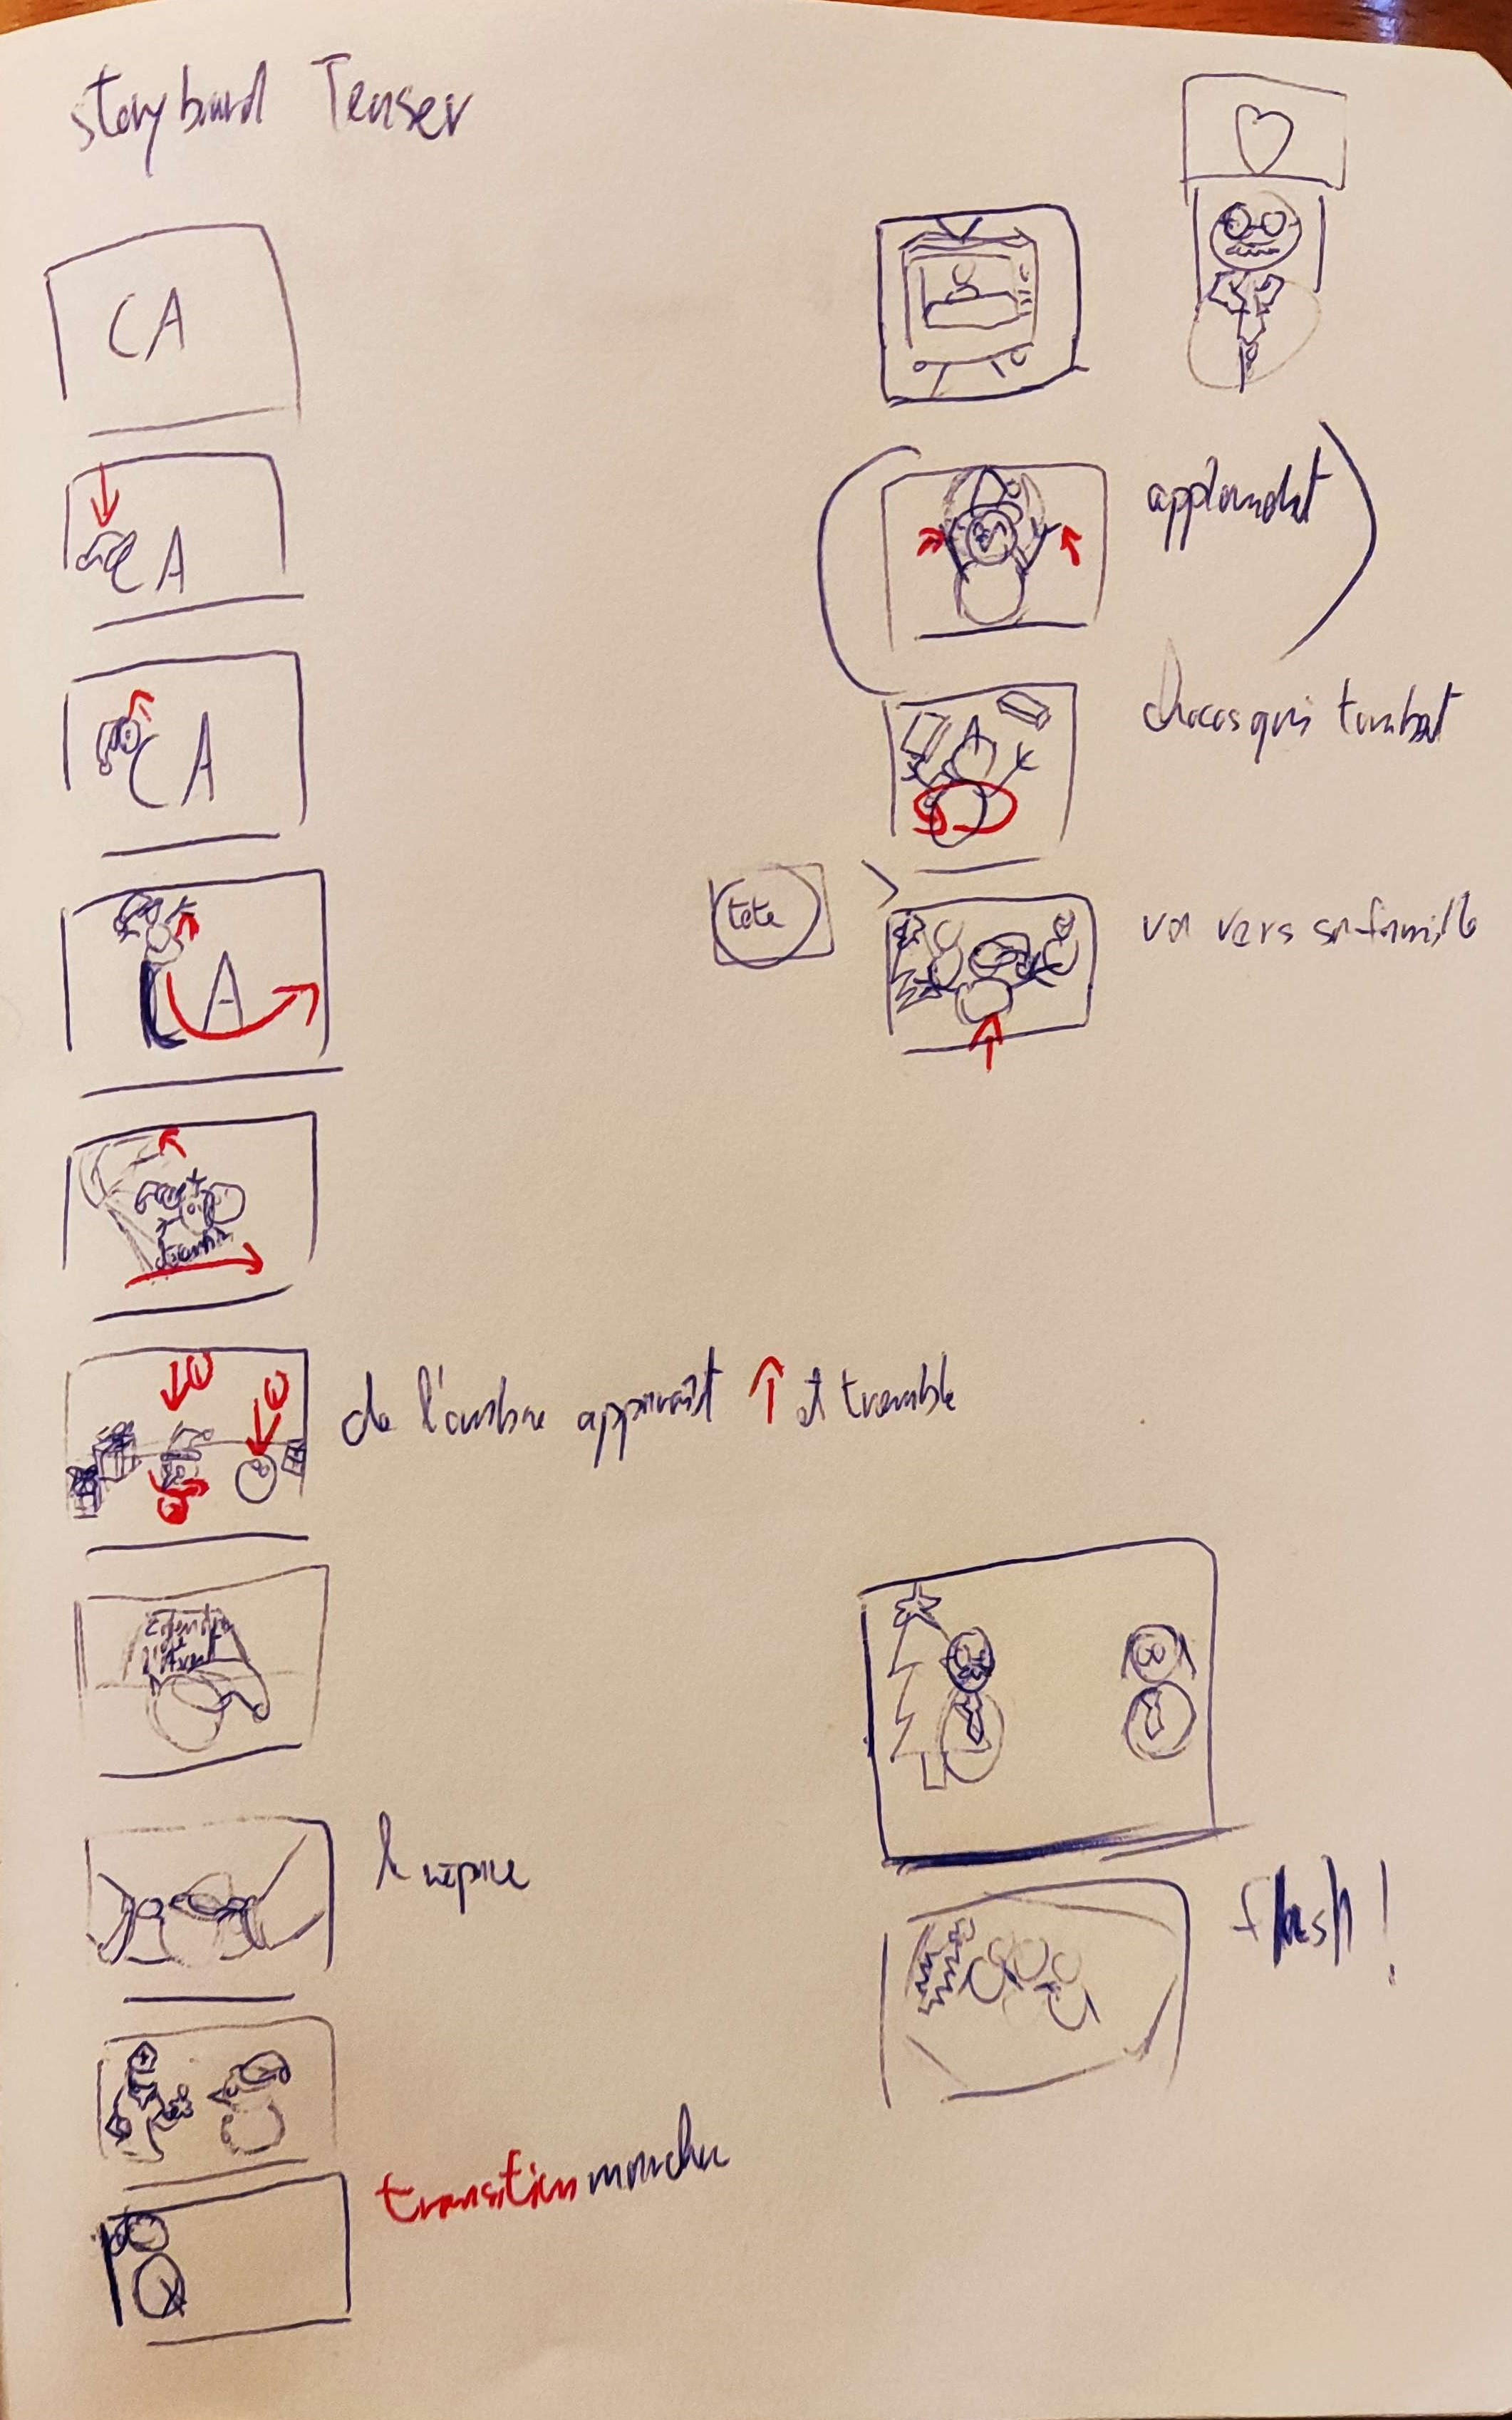 storyboard Teaser
CA
CA
CA
A
de l'ombre apparaît ↑ et tremble
Calendrier
l'Avent
transition marcher
applaudit
chocos qui tombent
tete
va vers sa famille
flash!